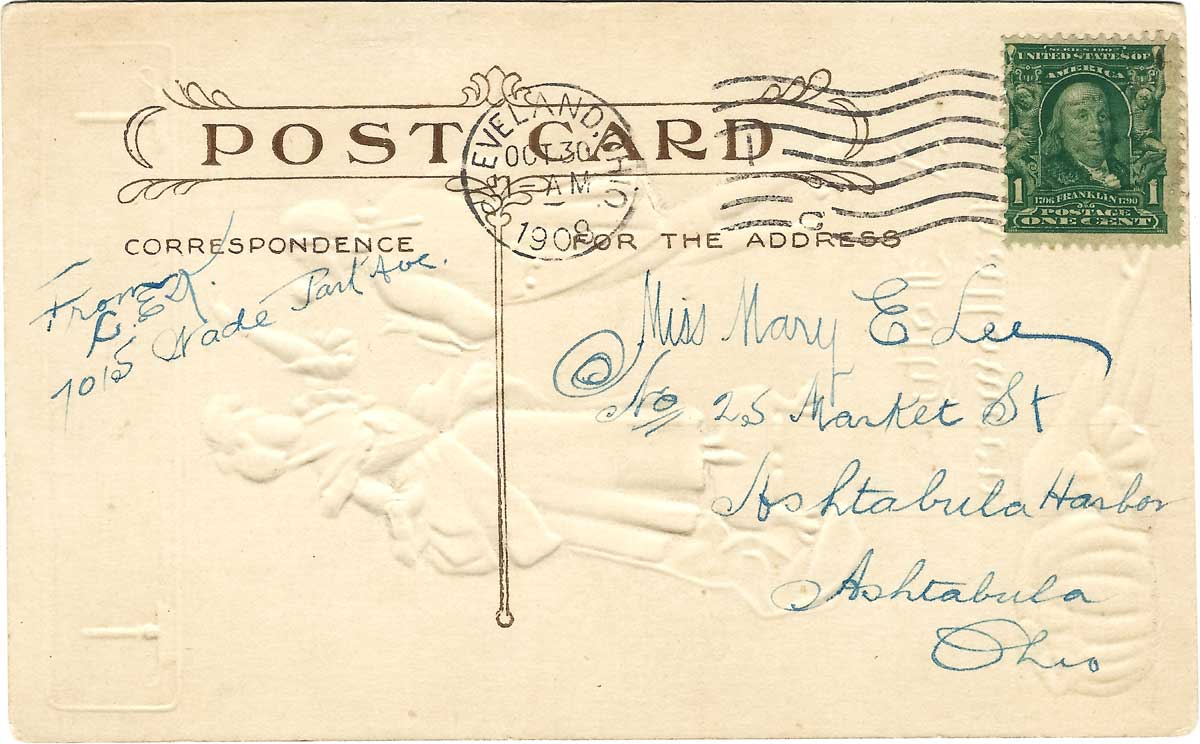 POST CARD
CLEVELAND, OHIO.
OCT 30
AM
1908
C
SERIES 1902
UNITED STATES OF
AMERICA
1 1
1706 FRANKLIN 1790
POSTAGE
ONE CENT
CORRESPONDENCE
FOR THE ADDRESS
From
7015 Wade Park Ave.
Miss Mary E Lee
No. 25 Market St
Ashtabula Harbor
Ashtabula
Ohio